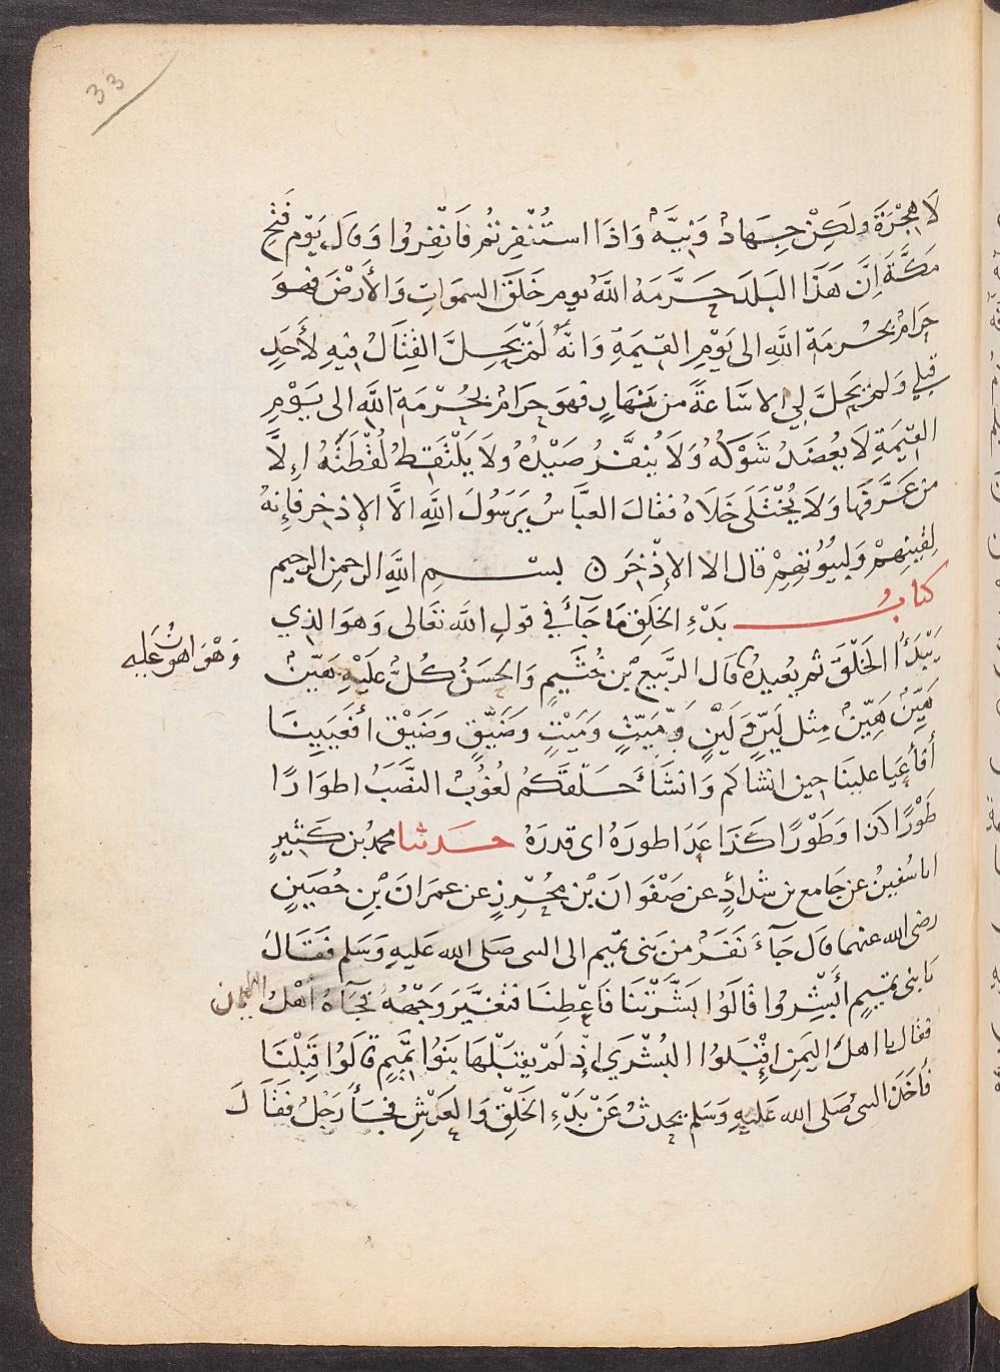 33
لَا هِجْرَةَ ولَكِنْ جِهَادٌ وَنِيَّةٌ وَاذَا اسْتُنْفِرتُمْ فَانْفِرُوا وَقَالَ يَوْمَ فَتْحِ
مَكَّةَ اِنَّ هَذَا البَلَدَ حَرَّمَهُ اللَّهُ يوم خَلَقَ السموَاتِ وَالأَرْضَ فهوَ
حَرَامٌ بحُرمَةِ اللَّهِ الى يَوْمِ القِيمَةِ وَانهُ لَمْ يَحِلَّ القِتَالُ فيهِ لأَحَدٍ
قبلِي وَلم يَحِلَّ لِي الا سَاعةً من نَهَارٍ فهوَ حَرَامٌ بحُرْمَةِ اللَّهِ الى يَوْمِ
القِيْمَةِ لَا يعْضَدُ شَوْكُهُ وَلَا يُنَفَّرُ صَيْدُهُ ولَا يَلْتَقِطُ لُقْطَتَهُ اِلَّا
من عَرَّفَهَا وَلَا يُخْتَلَى خَلَاهُ فقالَ العبَّاسُ يَرَسُولَ اللَّهِ الَّا الإذخِر فإِنهُ
لِقَيْنِهِمْ وَلِبيُوتِهِمْ قال الا الإِذْخِرَ ۞ بسْمِ اللَّهِ الرحمنِ الرحيم
كتابُ بَدْءِ الخَلْقِ مَا جَآءَ في قولِ اللَّه تعَالى وَهوَ الذِي
يَبْدَأُ الخَلْقَ ثم يُعيدُهُ قَال الرَّبيع بْن خُثَيمٍ وَالحسَنُ كُلٌّ عَلَيْهِ هَيِّنٌ
وَهْوَ اهوَنُ عَليهِ
هَيْنٌ هَيِّنٌ مِثل لَيْنٍ وَلَيِّنٍ وَمَيْتٍ وَمَيِّتٍ وضَيْقٍ وَضَيِّقٍ أفَعَيِينَا
أَفأَعْيَا علينَا حِين انشَاكم وَانشَأَ خَلْقَكُمْ لُغُوْبٌ النَّصَبُ اطوَارًا
طَوْرًا كذا وَطَوْرًا كَذَا عَدَا طورَهُ اى قدرَهُ حدثنا محمدُ بْن كَثيرٍ
انا سُفينُ عن جَامِع بن شدادٍ عن صَفْوَانَ بْن مُحْرِزٍ عن عمرَانَ بْنِ حُصَينٍ
رضى الله عنهما قَال جَآءَ نَفَرٌ من بَنى تميم الى النبى صَلى الله عَليهِ وَسَلم فَقَالَ
يَا بنى تميمٍ أَبْشِرُوا قَالَوُا بَشَّرْتَنَا فَاعْطِنَا فتَغَيَّرَ وَجْهُهُ فَجَآهُ اهْلُ
فقَال يا اهلَ اليَمنِ اقْبَلوُا البُشْرَي اِذ لَمْ يَقبَلْهَا بَنُوا تميمٍ قالوُا قَبِلْنَا
فأخَذ النبىُ صَلى الله عَليهِ وَسَلم يحدثُ عَنْ بَدْءِ الخَلْقِ وَالعَرْشِ فجَأَ رَجُلٌ فقَالَ